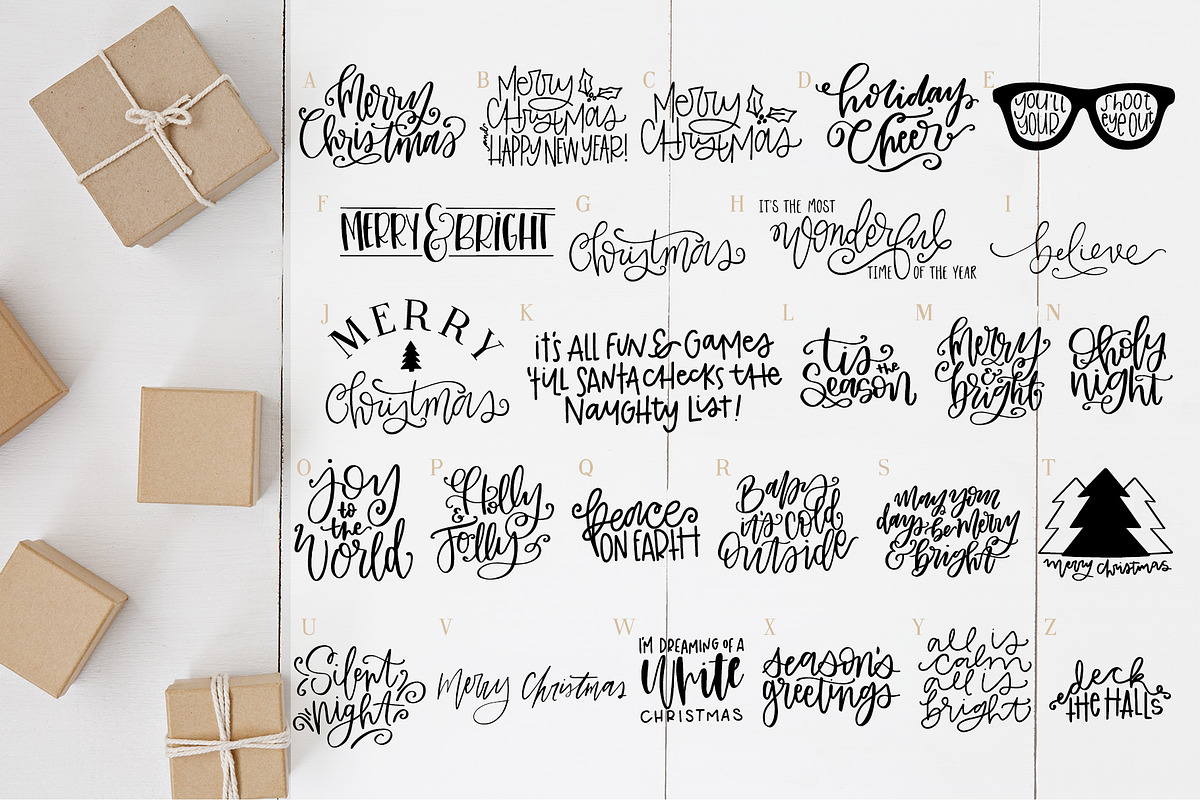 A
Merry
Christmas
B
Merry
Christmas
and
HAPPY NEW YEAR!
C
Merry
Christmas
D
holiday
Cheer
E
you'll
your
shoot
eye out
F
MERRY & BRIGHT
G
Christmas
H
IT'S THE MOST
Wonderful
TIME OF THE YEAR
I
believe
J
MERRY
Christmas
K
it's ALL FUN & GAMES
'till SANTA CHECKS tHE
NAUGHty List!
L
'tis
the
Season
M
Merry
&
bright
N
O holy
night
O
joy
to
the
World
P
Holly
&
Jolly
Q
peace
ON EARTH
R
Baby
it's cold
Outside
S
may your
days be merry
& bright
T
merry christmas
U
Silent
night
V
Merry Christmas
W
I'M DREAMING OF A
White
CHRISTMAS
X
season's
greetings
Y
all is
calm
all is
bright
Z
deck
tHE HALLS